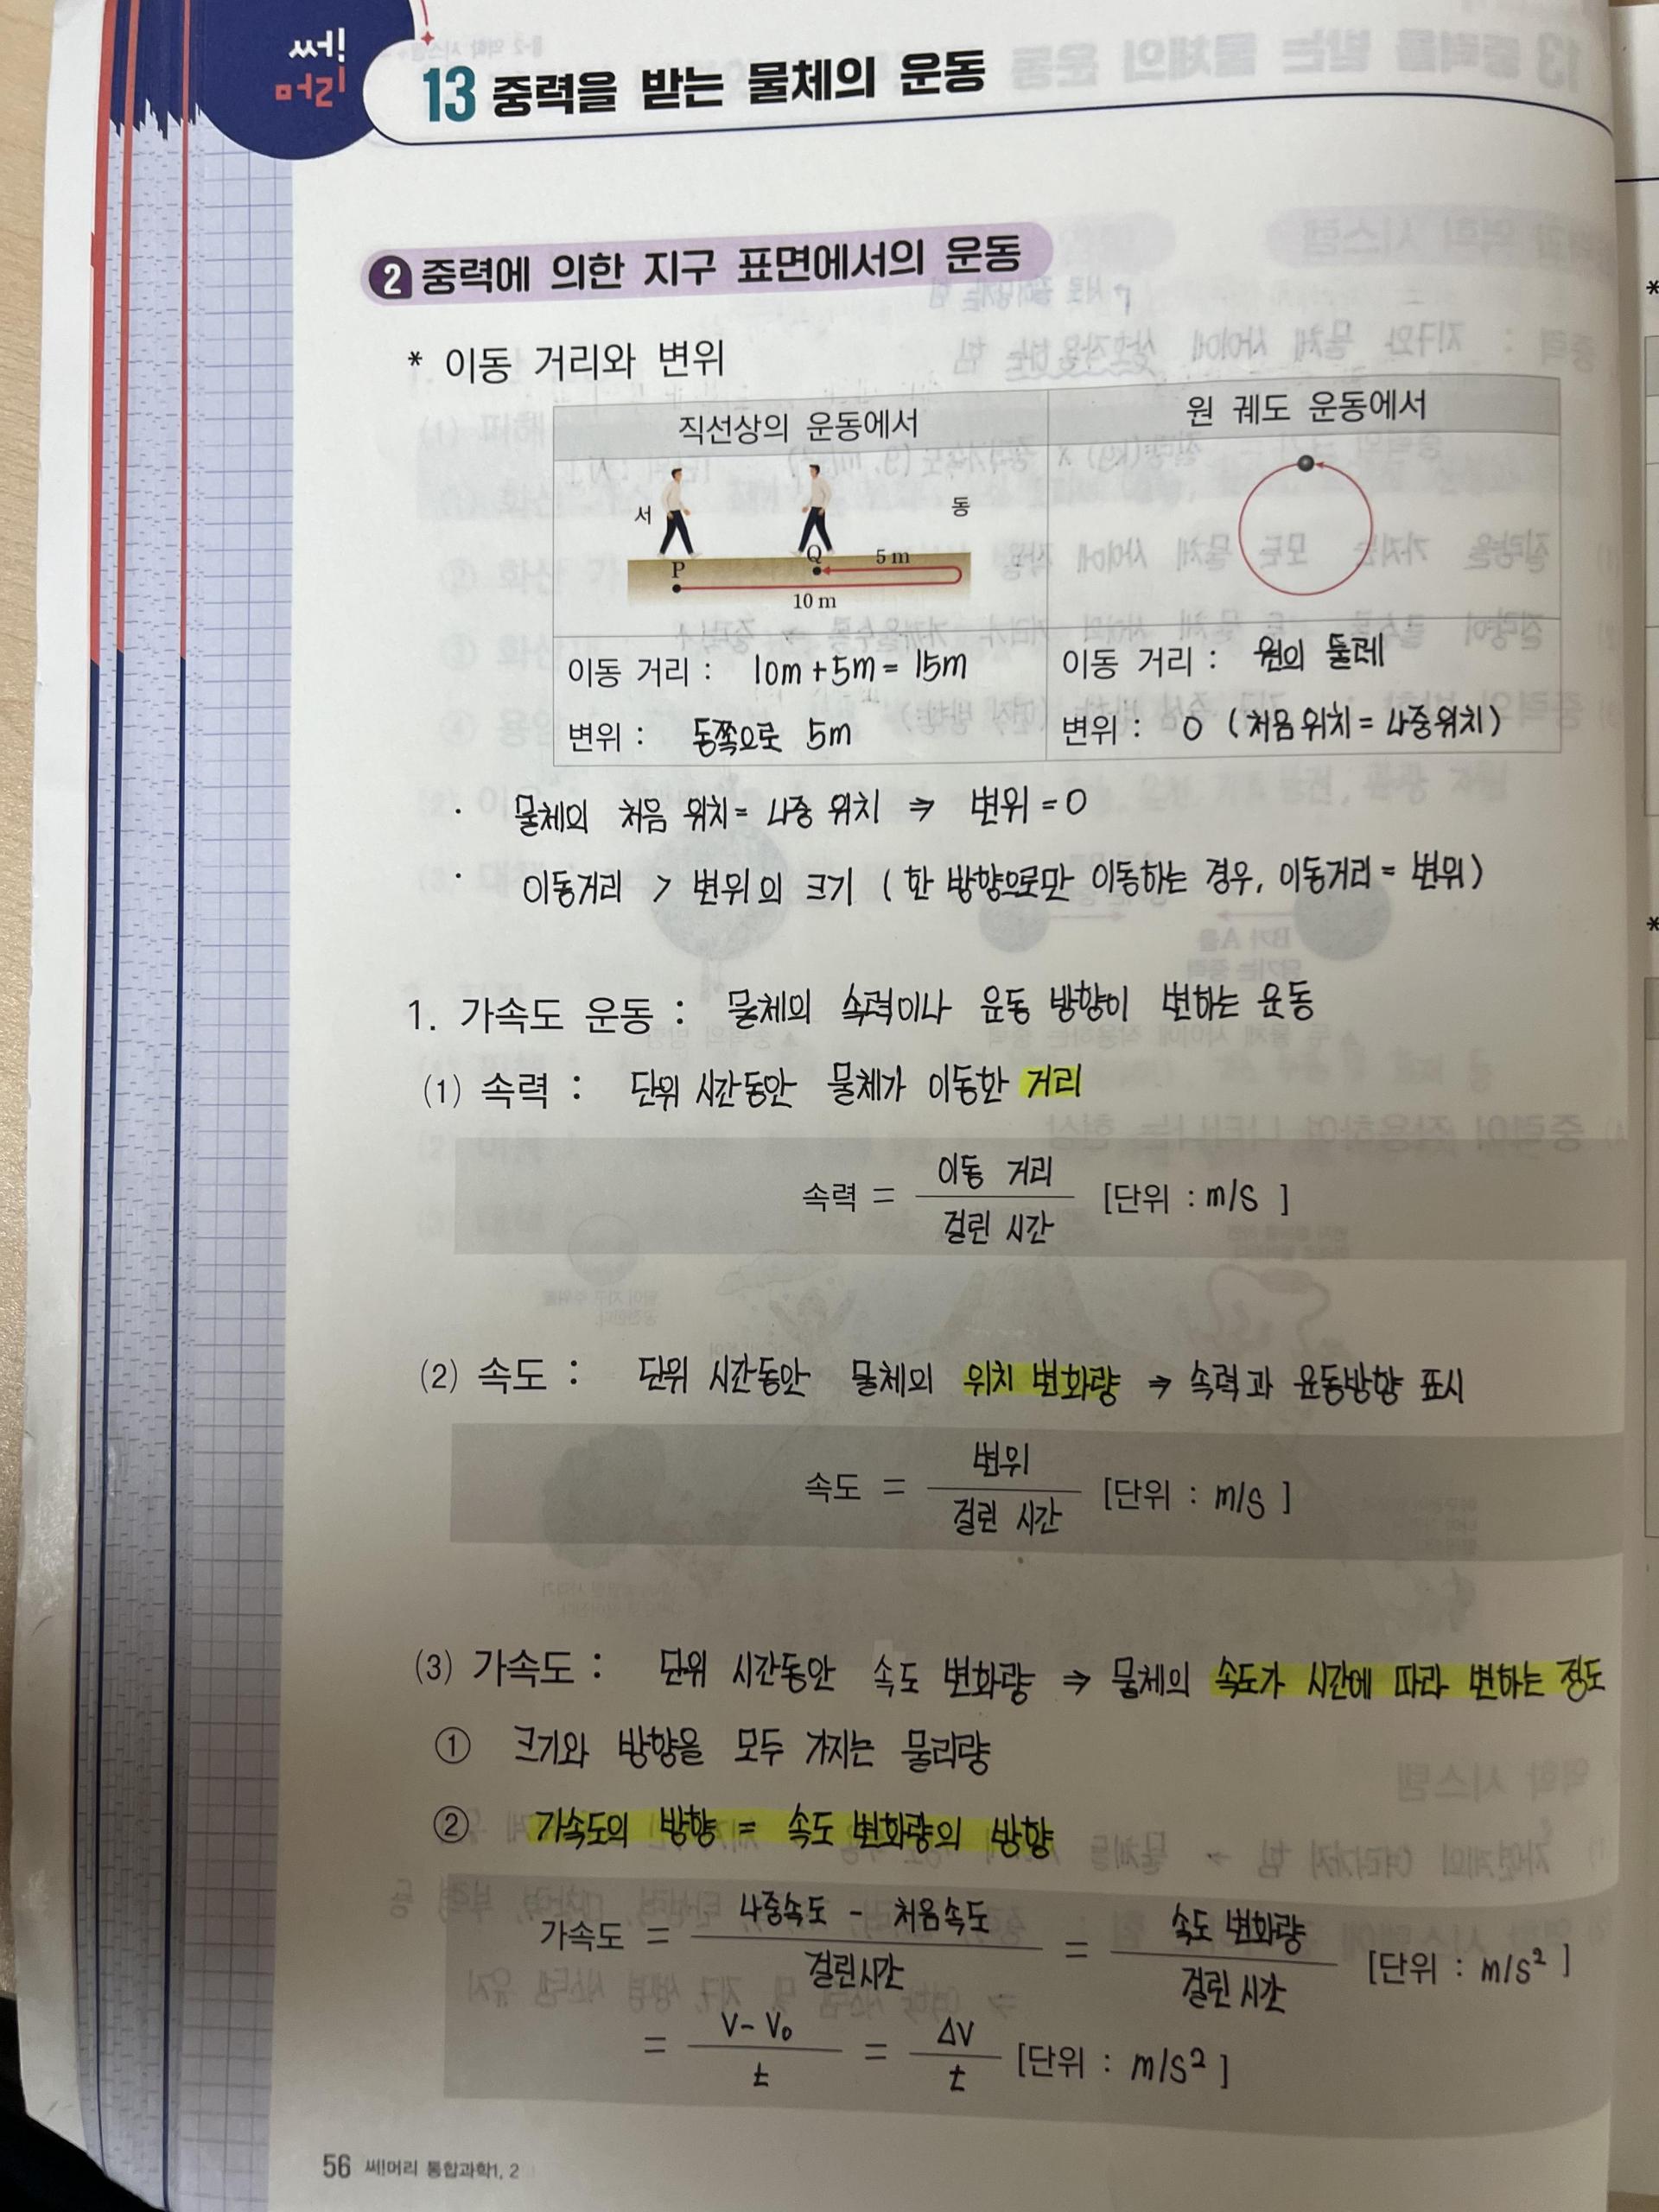 써!
머리
13 중력을 받는 물체의 운동
2 중력에 의한 지구 표면에서의 운동
* 이동 거리와 변위
직선상의 운동에서
원 궤도 운동에서
서
동
P
Q
5 m
10 m
이동 거리 : 10m + 5m = 15m
변위 : 동쪽으로 5m
이동 거리 : 원의 둘레
변위 : 0 (처음 위치 = 나중위치)
· 물체의 처음 위치 = 나중 위치 ⇒ 변위 = 0
· 이동거리 > 변위의 크기 ( 한 방향으로만 이동하는 경우, 이동거리 = 변위)
1. 가속도 운동 : 물체의 속력이나 운동 방향이 변하는 운동
(1) 속력 : 단위 시간동안 물체가 이동한 거리
속력 = 이동 거리 / 걸린 시간 [단위 : m/s ]
(2) 속도 : 단위 시간동안 물체의 위치 변화량 ⇒ 속력과 운동방향 표시
속도 = 변위 / 걸린 시간 [단위 : m/s ]
(3) 가속도 : 단위 시간동안 속도 변화량 ⇒ 물체의 속도가 시간에 따라 변하는 정도
① 크기와 방향을 모두 가지는 물리량
② 가속도의 방향 = 속도 변화량의 방향
가속도 = 나중속도 - 처음속도 / 걸린시간 = 속도 변화량 / 걸린 시간 [단위 : m/s² ]
= V - V₀ / t = ΔV / t [단위 : m/s² ]
56 써!머리 통합과학1, 2